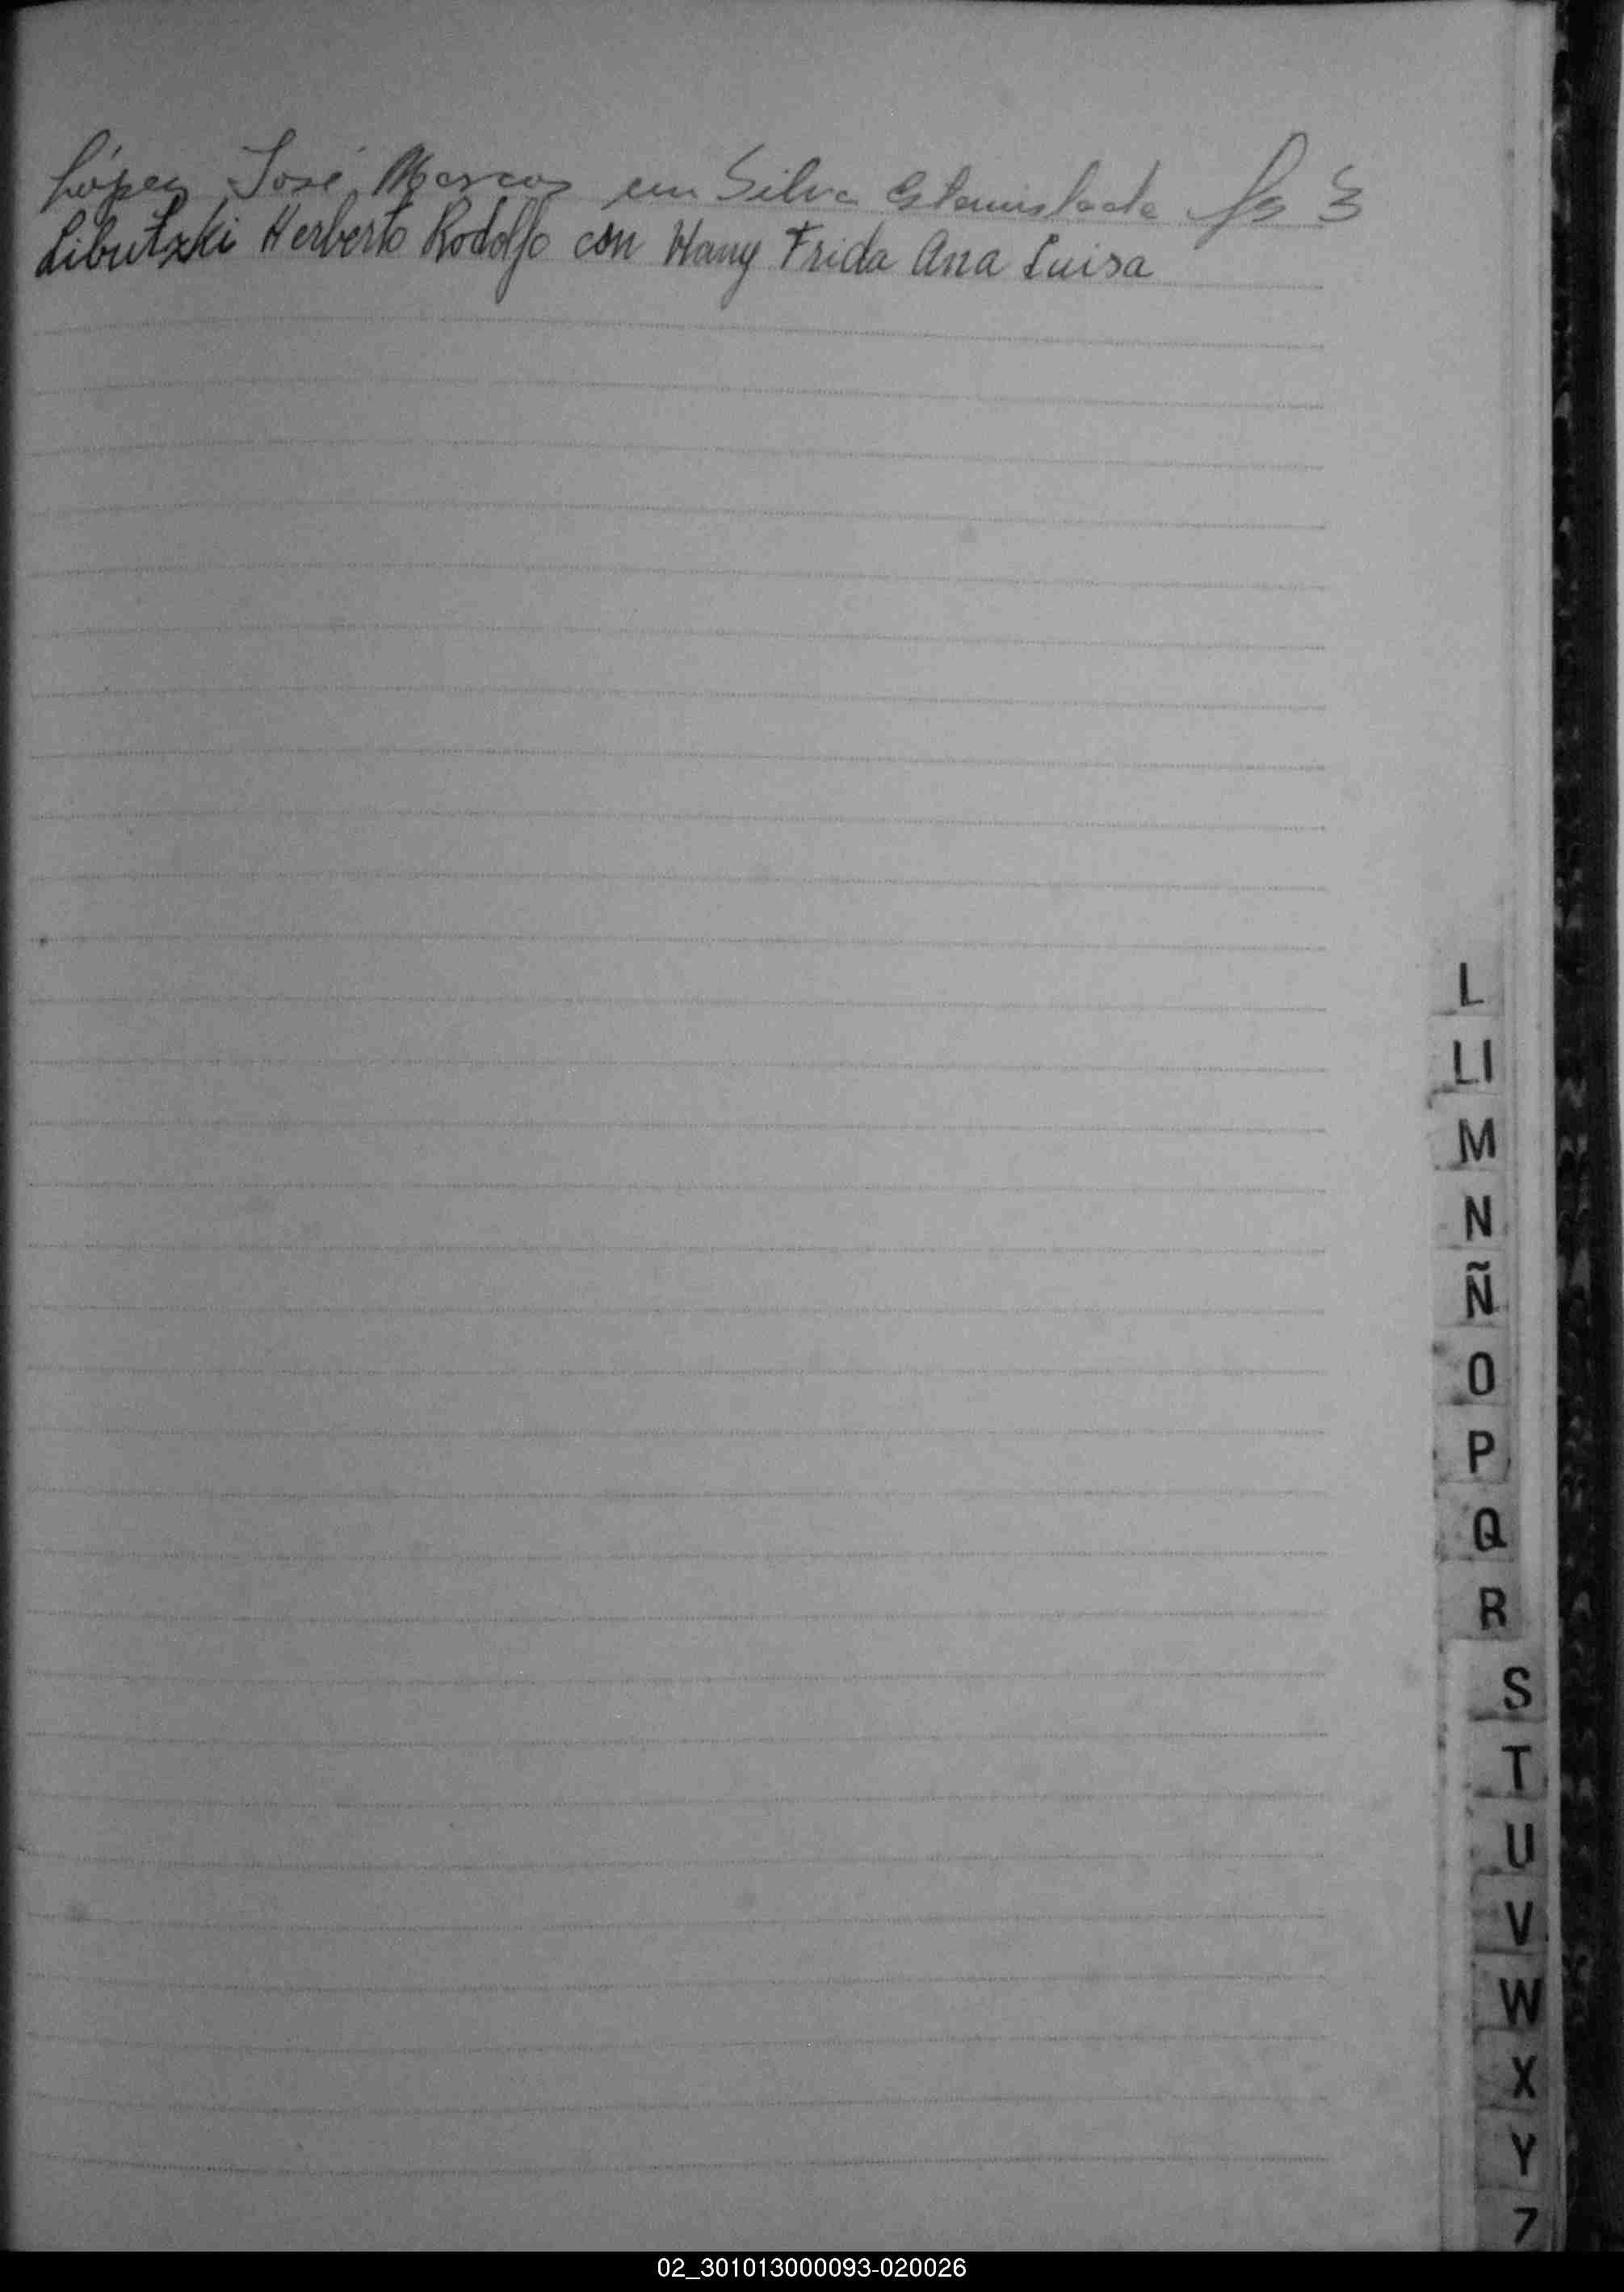 López José Marcos con Silva Estanislada fs 3
Libutzki Herberto Rodolfo con Hany Frida Ana Luisa
L
Ll
M
N
Ñ
O
P
Q
R
S
T
U
V
W
X
Y
Z
02_301013000093-020026